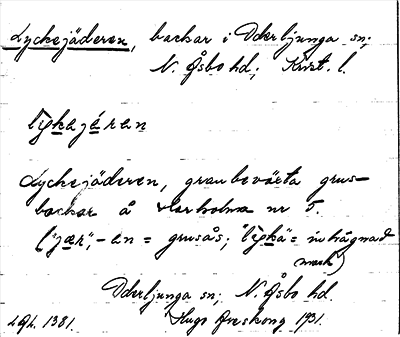 Lyckejäderen, backar i Oderljunga sn;
N. Åsbo hd; Krist. l.
lykajæren
Lyckejäderen, granbeväxta grus-
backar å Harholma nr 5.
("jær", -en = grusås; "lyka" = inhägnad
mark)
Oderljunga sn; N. Åsbo hd.
LAL. 1381. Hugo Areskoug 1931.